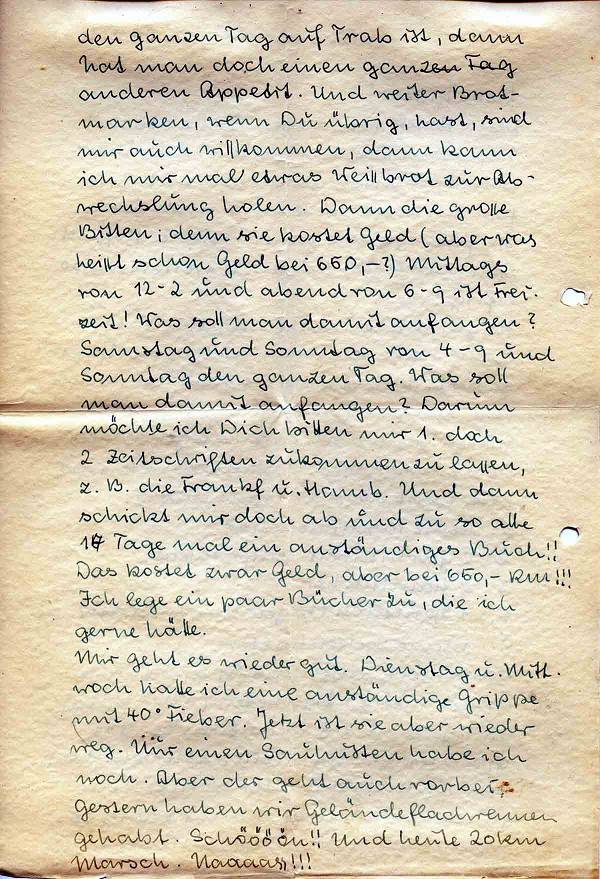 den ganzen Tag auf Trab ist, dann
hat man doch einen ganzen Tag
anderen Appetit. Und weiter Brot-
marken, wenn Du übrig, hast, sind
mir auch willkommen, dann kann
ich mir mal etwas Weißbrot zur Ab-
wechslung holen. Dann die große
Bitten; denn sie kostet Geld (aber was
heißt schon Geld bei 650,-?) Mittags
von 12-2 und abend von 6-9 ist Frei-
zeit! Was soll man damit anfangen?
Samstag und Sonntag von 4-9 und
Sonntag den ganzen Tag. Was soll
man damit anfangen? Darum
möchte ich Dich bitten mir 1. doch
2 Zeitschriften zukommen zu lassen,
z. B. die Frankf u. Hamb. Und dann
schickt mir doch ab und zu so alle
Tage mal ein anständiges Buch!!
Das kostet zwar Geld, aber bei 650,- RM!!!
Ich lege ein paar Bücher zu, die ich
gerne hätte.
Mir geht es wieder gut. Dienstag u. Mitt-
woch hatte ich eine anständige Grippe
mit 40° Fieber. Jetzt ist sie aber wieder
weg. Nur einen Sauhusten habe ich
noch. Aber der geht auch vorbei.
Gestern haben wir Geländeflachrennen
gehabt. Schööööön!! Und heute 20km
Marsch. Naaaas!!!